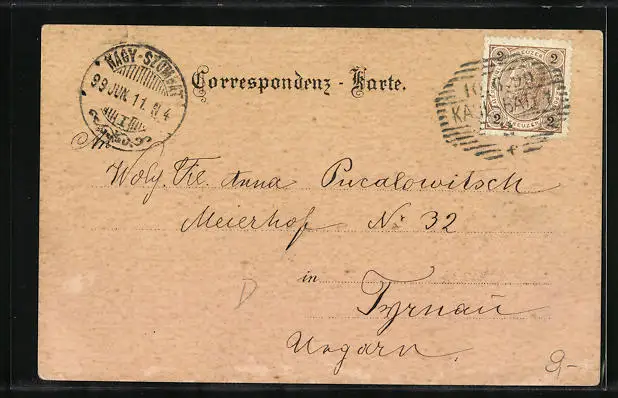 NAGY-SZOMBAT
99 JUN. 11. N 4
Correspondenz-Karte.
2 2
KREUZER
2 2
10.6.99
An
Wolg. Frl. Anna Pucalowitsch
Meierhof No 32
in
Tyrnau
Ungarn.
D
2-